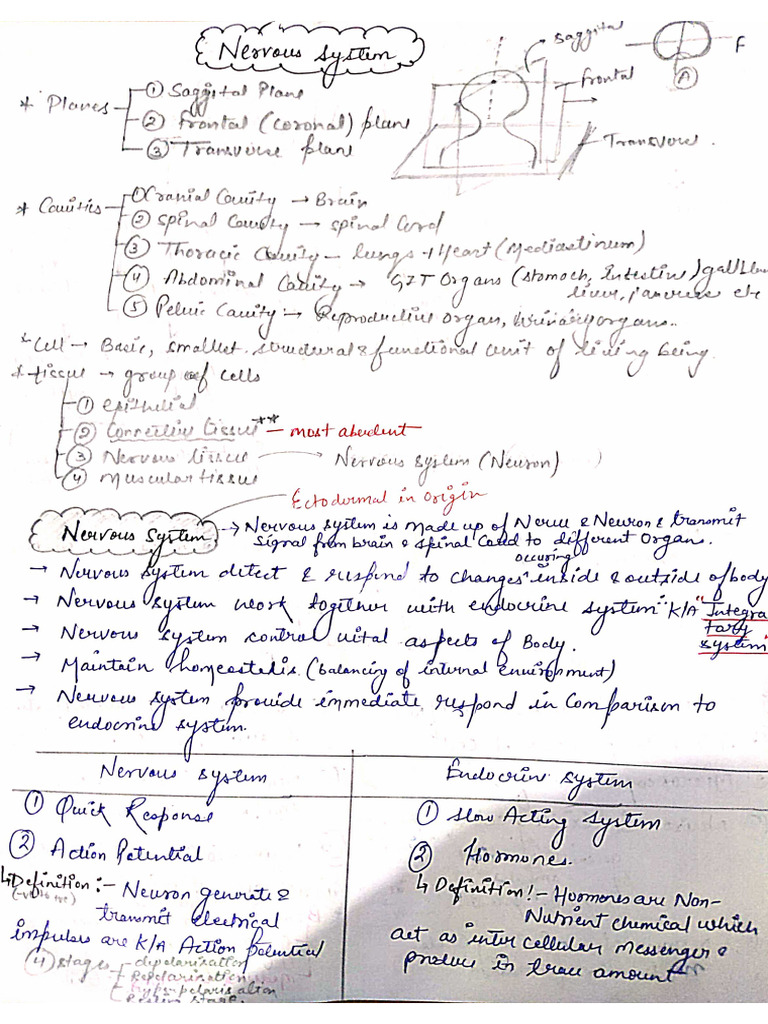 Nervous System
Saggital
F
A
frontal
Transverse.
* Planes
① Saggital Plane
② Frontal (coronal) plane
③ Transverse plane
* Cavities
① Cranial Cavity → Brain
② Spinal Cavity → spinal Cord
③ Thoracic Cavity - lungs + Heart (Mediastinum)
④ Abdominal Cavity → GIT Organs (stomach, intestine)
liver, etc
⑤ Pelvic Cavity → Reproductive organ, Urinary organs..
* Cell → Basic, smallest. structural & functional Unit of living being.
* tissue → group of cells
① epithelial
② Connective tissue ** - most abendent
③ Nervous tissue → Nervous system (Neuron)
④ Muscular tissue
Ectodermal in Origin
Nervous System → Nervous system is made up of Nerve & Neuron & transmit
Signal from brain & spinal Caud to different Organ.
occuring
→ Nervous system detect & respond to changes inside & outside of body
→ Nervous system work together with endocrine system "K/A "Integra
tary
system"
→ Nervous system control vital aspects of Body.
→ Maintain homeostelis (balancing of internal environment)
→ Nervous system provide immediate respond in Comparison to
endocrine system.
Nervous system
① Quick Response
② Action Potential
↳ Definition :- Neuron generate &
(-ve to +ve)
transmit electrical
impulses are K/A Action Potential
④ stages - depolarisation
- Repolarisation
- hyperpolarisation
- Restin stage.
Endocrin system
① Slow Acting System
② Hormones.
↳ Definition!- Hormones are Non-
Nutrient chemical which
act as inter cellular messenger &
produce in trace amount